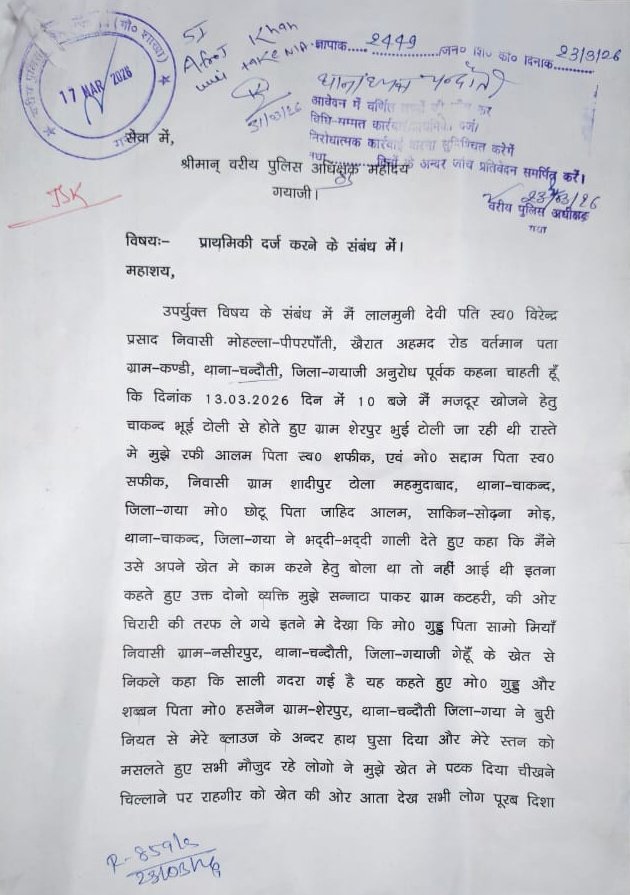 SI
Afroj Khan
will take N/A
31/03/26
17 MAR 2026
ज्ञापांक..... 2449 ............/जन० शि० को० दिनांक 23/3/26
थानाध्यक्ष चन्दौती
आवेदन में वर्णित
विधि-सम्मत कार्रवाई
निरोधात्मक कार्रवाई करना सुनिश्चित करेंगे
तथा............दिनों के अन्दर जांच प्रतिवेदन समर्पित करें।
23/03/26
वरीय पुलिस अधीक्षक
गया
सेवा में,
श्रीमान् वरीय पुलिस अधिक्षक महोदय
गयाजी।
JSK
विषयः- प्राथमिकी दर्ज करने के संबंध में।
महाशय,
उपर्युक्त विषय के संबंध में मैं लालमुनी देवी पति स्व० विरेन्द्र
प्रसाद निवासी मोहल्ला-पीपरपाँती, खैरात अहमद रोड वर्तमान पता
ग्राम-कण्डी, थाना-चन्दौती, जिला-गयाजी अनुरोध पूर्वक कहना चाहती हूँ
कि दिनांक 13.03.2026 दिन में 10 बजे मैं मजदूर खोजने हेतु
चाकन्द भूई टोली से होते हुए ग्राम शेरपुर भुई टोली जा रही थी रास्ते
मे मुझे रफी आलम पिता स्व० शफीक, एवं मो० सद्दाम पिता स्व०
सफीक, निवासी ग्राम शादीपुर टोला महमुदाबाद, थाना-चाकन्द,
जिला-गया मो० छोटू पिता जाहिद आलम, साकिन-सोढ़ना मोड़,
थाना-चाकन्द, जिला-गया ने भद्दी-भद्दी गाली देते हुए कहा कि मैंने
उसे अपने खेत मे काम करने हेतु बोला था तो नहीं आई थी इतना
कहते हुए उक्त दोनो व्यक्ति मुझे सन्नाटा पाकर ग्राम कटहरी, की ओर
चिरारी की तरफ ले गये इतने मे देखा कि मो० गुड्डु पिता सामो मियाँ
निवासी ग्राम-नसीरपुर, थाना-चन्दौती, जिला-गयाजी गेहूँ के खेत से
निकले कहा कि साली गदरा गई है यह कहते हुए मो० गुड्डु और
शब्बन पिता मो० हसनैन ग्राम-शेरपुर, थाना-चन्दौती जिला-गया ने बुरी
नियत से मेरे ब्लाउज के अन्दर हाथ घुसा दिया और मेरे स्तन को
मसलते हुए सभी मौजुद रहे लोगो ने मुझे खेत मे पटक दिया चीखने
चिल्लाने पर राहगीर को खेत की ओर आता देख सभी लोग पूरब दिशा
R-859/c
23/03/26